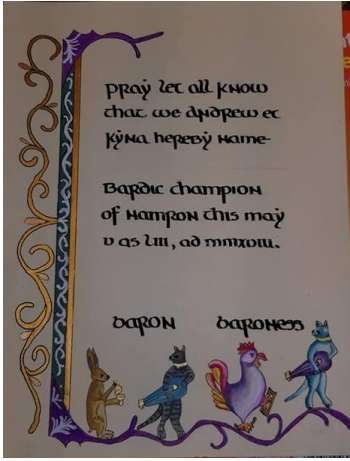 pray let all know
that we Andrew et
Kÿna hereby name
Bardic champion
of Nampron this maÿ
v as liii, ad mmxviii.
baron baroness